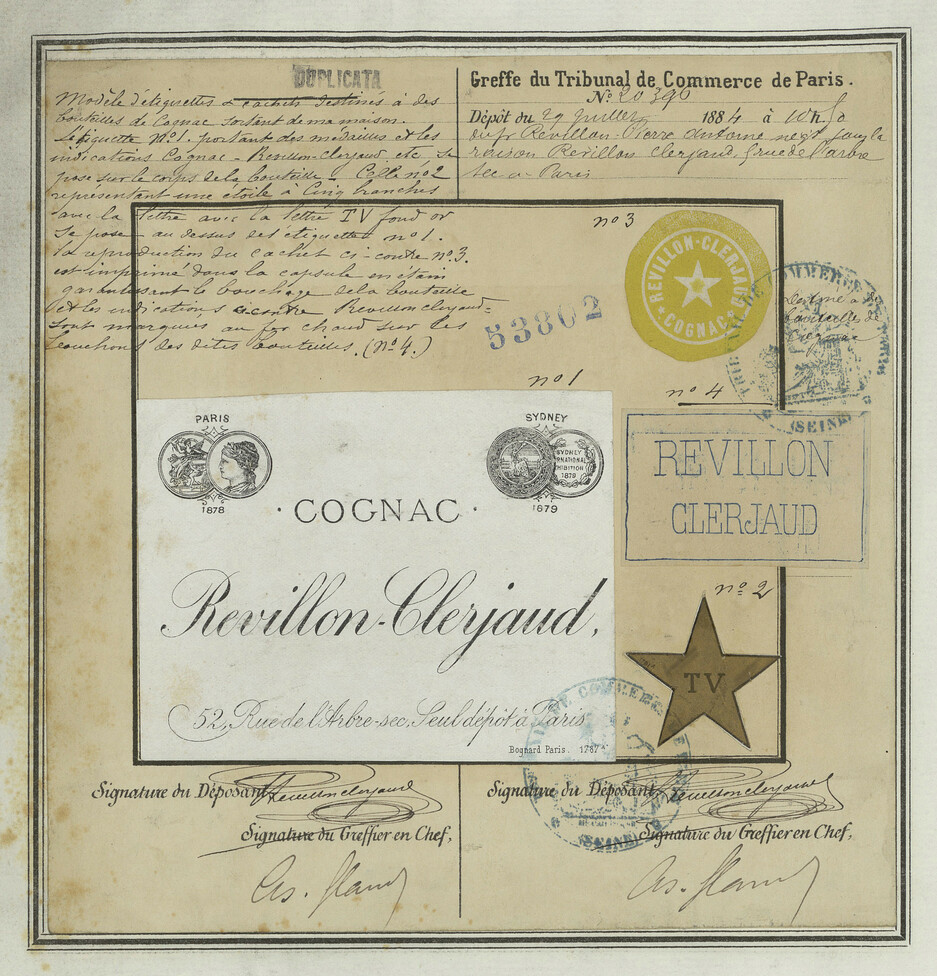 DUPLICATA
Modèle d'étiquettes & cachets destinés à des
bouteilles de Cognac sortant de ma maison.
L'étiquette No1. portant des médailles et les
indications Cognac - Revillon-Clerjaud etc se
pose sur le corps de la bouteille. Celle no 2
représentant une étoile à Cinq branches
avec la lettre avec la lettre TV fond or
se pose au dessus de l'étiquette no 1.
La reproduction du cachet ci-contre No.3.
est imprimé dans la capsule en étain
garantissant le bouchage de la bouteille
et les indications contre Revillon clerjaud
sont marquées au fer chaud sur les
bouchons des dites bouteilles. (No 4.)
Greffe du Tribunal de Commerce de Paris.
No. 20390
Dépôt du 29 juillet 1884 à 10h
Revillon Pierre Antoine negt sous la
raison Revillon Clerjaud, rue de l'arbre
sec à Paris
no 3
REVILLON-CLERJAUD
COGNAC
53802
bouteilles de
Cognac
TRIBUNAL DE COMMERCE DE PARIS
(SEINE)
no 1
no 4
REVILLON
CLERJAUD
PARIS
1878
SYDNEY
SYDNEY
INTERNATIONAL
EXHIBITION
1879
1879
· COGNAC ·
Revillon-Clerjaud,
52, Rue de l'Arbre-sec, Seul dépôt à Paris
Bognard Paris. 1787
no 2
TV
DE COMMERCE
(SEINE)
Signature du Déposant
Revillonclerjaud
Signature du Greffier en Chef,
Signature du Déposant
Revillonclerjaud
Signature du Greffier en Chef,